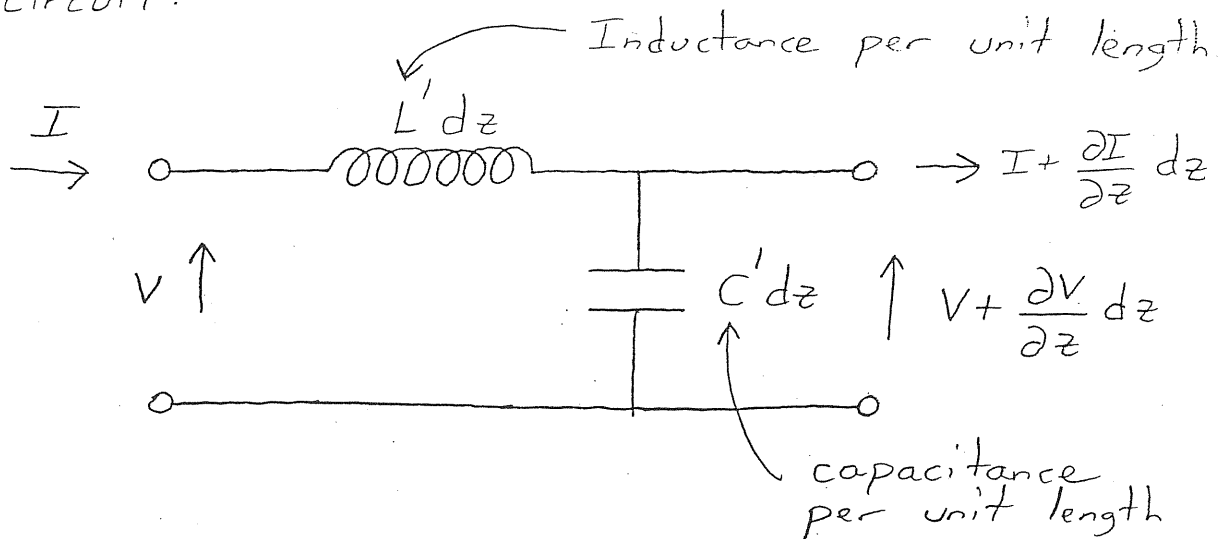 circuit:
Inductance per unit length
L'dz
I
I + ∂I/∂z dz
V
C'dz
V + ∂V/∂z dz
capacitance
per unit length